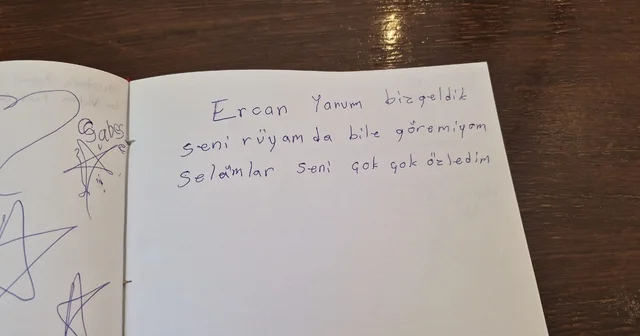 Ercan Yanum bizgeldik
seni rüyam da bile göremiyom
Selâmlar seni çok çok özledim